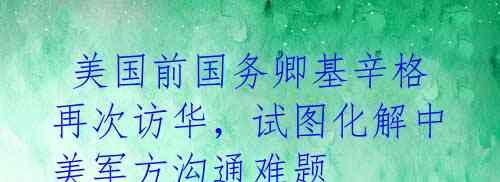 美国前国务卿基辛格
再次访华，试图化解中
美军方沟通难题